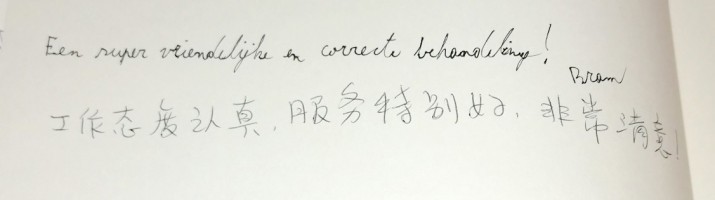 Een super vriendelijke en correcte behandeling!
Bram
工作态度认真,服务特别好,非常满意!